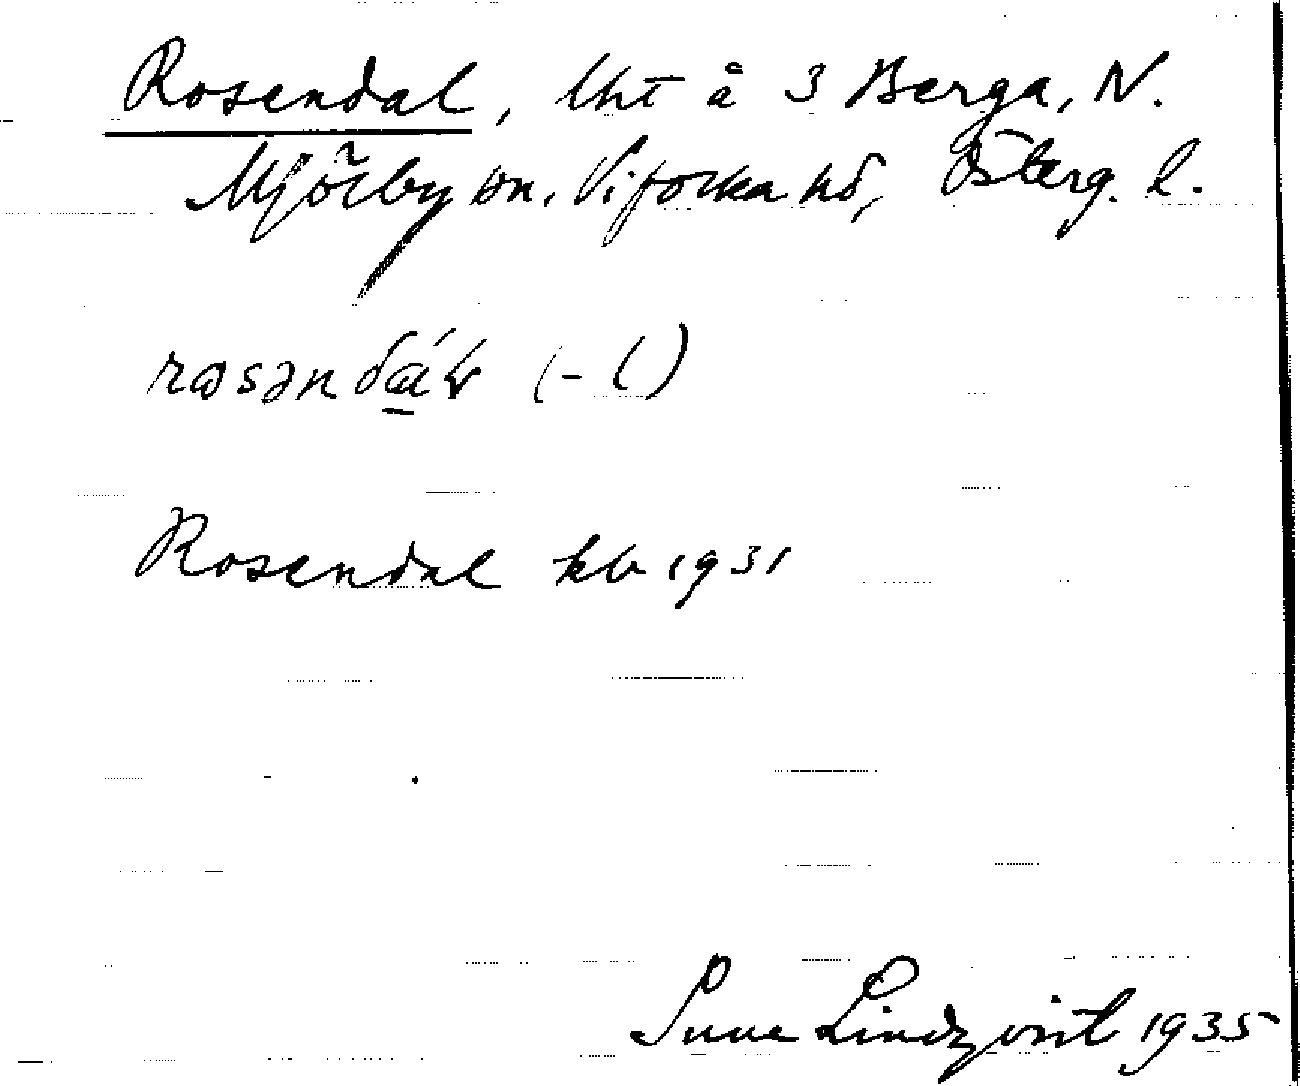 Rosendal, lht å 3 Berga, N.
Mjölby sn. Vifolka hd, Österg. l.
rosəndáɫ (-l)
Rosendal kb 1931
Sune Lindqvist 1935